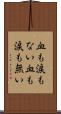 血も涙も
ない血も
涙も無い